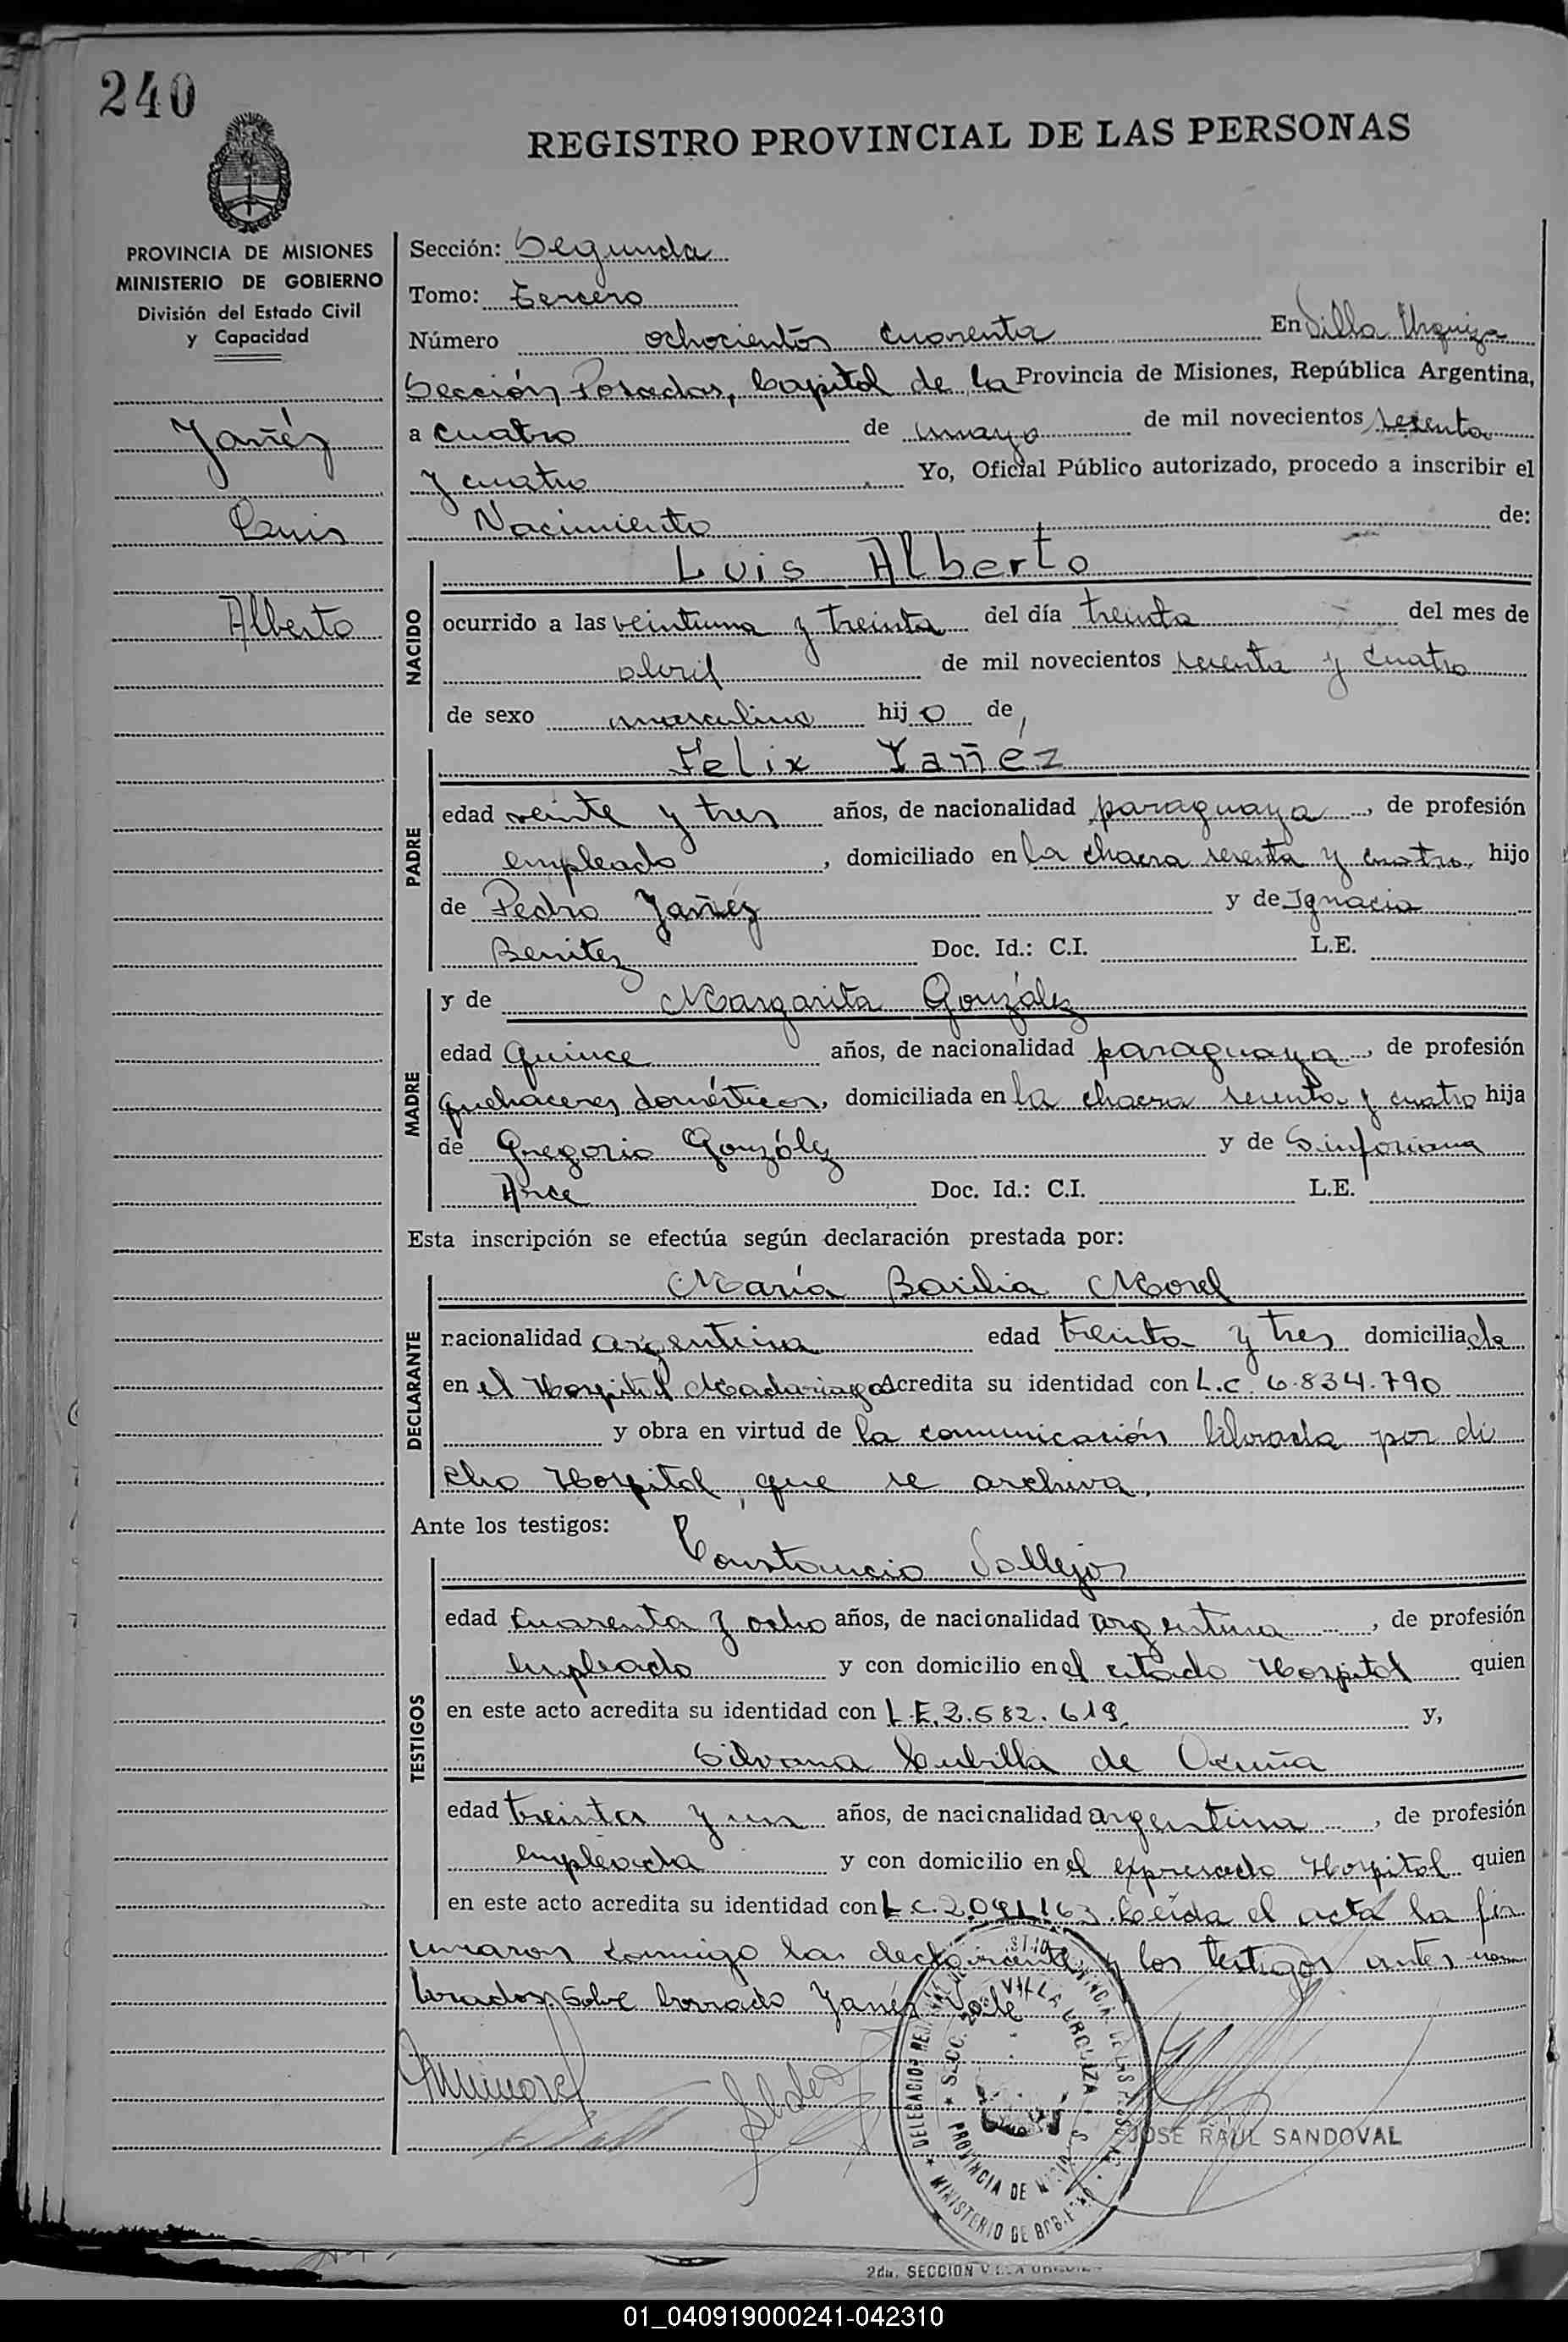 240
REGISTRO PROVINCIAL DE LAS PERSONAS
PROVINCIA DE MISIONES
MINISTERIO DE GOBIERNO
División del Estado Civil
y Capacidad
Yañéz
Luis
Alberto
Sección: Segunda
Tomo: Tercero
Número ochocientos cuarenta En Villa Urquiza
Sección Posadas, Capital de la Provincia de Misiones, República Argentina,
a cuatro de mayo de mil novecientos sesenta
y cuatro Yo, Oficial Público autorizado, procedo a inscribir el
Nacimiento de:
NACIDO
Luis Alberto
ocurrido a las veintiuna y treinta del día treinta del mes de
abril de mil novecientos sesenta y cuatro
de sexo masculino hijo de,
PADRE
Felix Yañéz
edad veinte y tres años, de nacionalidad paraguaya, de profesión
empleado, domiciliado en la chacra sesenta y cuatro, hijo
de Pedro Yañéz y de Ignacia
Benitez Doc. Id.: C.I. L.E.
MADRE
y de Margarita González
edad quince años, de nacionalidad paraguaya, de profesión
quehaceres domésticos, domiciliada en la chacra sesenta y cuatro hija
de Gregorio González y de Sinforiana
Arce Doc. Id.: C.I. L.E.
Esta inscripción se efectúa según declaración prestada por:
DECLARANTE
María Basilia Morel
nacionalidad argentina edad treinta y tres domiciliada
en el Hospital Madariaga Acredita su identidad con L.C. 6.834.790
y obra en virtud de la comunicación librada por di
cho Hospital, que se archiva.
Ante los testigos:
TESTIGOS
Constancio Vallejos
edad cuarenta y ocho años, de nacionalidad argentina, de profesión
empleado y con domicilio en el citado Hospital quien
en este acto acredita su identidad con L.E. 2.582.619, y,
Silvana Cubilla de Acuña
edad treinta y un años, de nacionalidad argentina, de profesión
empleada y con domicilio en el expresado Hospital quien
en este acto acredita su identidad con L.C. 2.091.163. Leída el acta la fir
maron conmigo la declarante y los testigos antes nom
brados. Sobre borrado Yañéz Vale
DELEGACION
SECC. 2da. VILLA URQUIZA
PROVINCIA DE MISIONES
MINISTERIO DE GOBIERNO
JOSE RAUL SANDOVAL
2da. SECCION VILLA URQUIZA
01_040919000241-042310